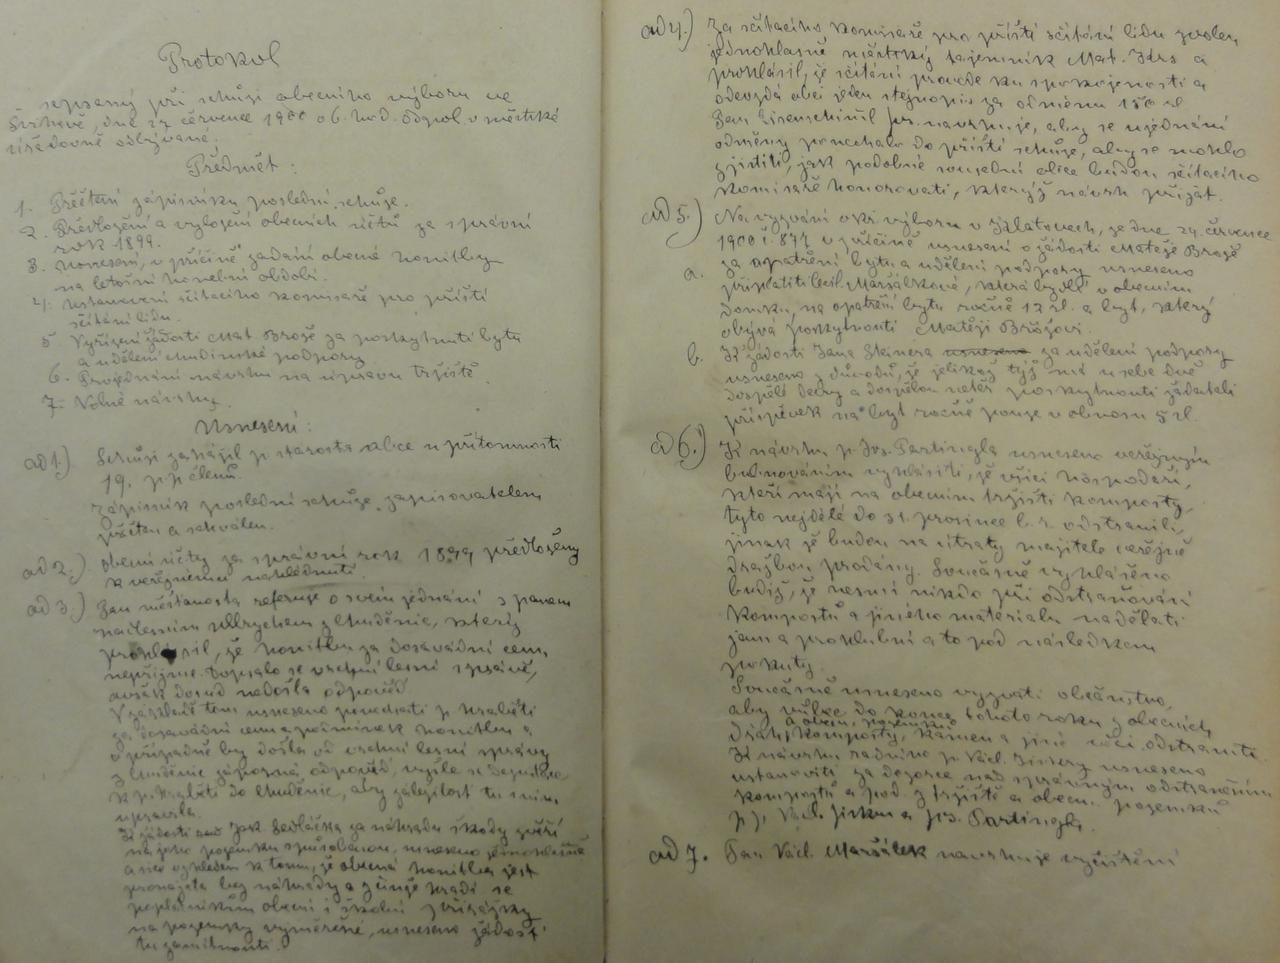 Protokol
sepsaný při schůzi obecního výboru ve
dne 27 července 1900 o 6. hod. odpol v městské
úřadovně odbývané.
Předmět:
1. Přečtení zápisníku poslední schůze.
2. Předložení a vyložení obecních účtů za správní
rok 1899.
3. Usnesení, v příčině zadání obecné honitby
na letošní honební období.
4. Ustanovení sčítacího komisaře pro příští
sčítání lidu.
5 Vyřízení žádosti Mat. Brože za poskytnutí bytu
a udělení chudinské podpory.
6. Projednání návrhu na úpravu tržiště.
7. Volné návrhy.
Usnesení:
ad 1.) Schůzi zahájil p. starosta obce u přítomnosti
19. p.p. členů.
Zápisník poslední schůze zapisovatelem
přečten a schválen.
ad 2.) Obecní účty za správní rok 1899 předloženy
k veřejnému nahlédnutí.
ad 3.) Pan měšťanosta referuje o svém jednání s panem
z Chuděnic, kterýž
prohlásil, že honitbu za dosavadní cenu
nepřijme. Dopsalo se vrchní lesní správě,
avšak dosud nedošla odpověď.
V záležitosti té usneseno ponechati p. hraběti
za dosavadní cenu a podmínek honitbu a
v případě by došla od vrchní lesní správy
z Chuděnic záporná odpověď, vyšle se deputace
k p. hraběti do Chuděnic, aby záležitost tu s ním
upravila.
K žádosti Jak. Sedláčka za náhradu škody zvěří
na jeho pozemku způsobenou, usneseno jednohlasně
a sice vzhledem k tomu, že obecná honitba jest
pronajata bez náhrady a z činže hradí se
poplatníkům obecní i školní přirážky
na pozemky vyměřené, usneseno žádost
tu zamítnouti.
ad 4.) Za sčítacího komisaře pro příští sčítání lidu zvolen
jednohlasně městský tajemník Mat. a
prohlásil, že sčítání provede ku spokojenosti a
odevzdá obci jeden stejnopis za odměnu 150 zl.
Jan Eisenschiml jr. navrhuje, aby se ujednání
odměny ponechalo do příští schůze, aby se mohlo
zjistiti, jak podobné sousední obce budou sčítacího
komisaře honorovati, kterýž návrh přijat.
ad 5.) Na vyzvání okr. výboru v Klatovech, ze dne 24. července
1900 č. 877 v příčině usnesení o žádosti Matěje Brože
za opatření bytu a udělení podpory usneseno
a. připlatiti Maršálkové, která bydlí v obecním
domku, na opatření bytu ročně 12 zl. a byt, který
obývá poskytnouti Matěji Brožovi.
b. K žádosti Jana Skinera usneseno za udělení podpory
usneseno z důvodů, že jelikož týž má u sebe dvě
dospělé dcery a dospělou neteř poskytnouti žadateli
příspěvek na byt ročně pouze v obnosu 5 zl.
ad 6.) K návrhu p. Jos. Partingla usneseno veřejným
bubnováním vyhlásiti, že všici hospodáři,
kteří mají na obecním tržišti komposty,
tyto nejdéle do 31. prosince b. r. odstranili,
jinak že budou na útraty majitele veřejně
dražbou prodány. Současně vyhlášeno
budiž, že nesmí nikdo při odstraňování
kompostů a jiného materialu nadělati
jam a prohlubní a to pod následkem
pokuty.
Současně usneseno vyzvati občanstvo,
aby vůbec do konce tohoto roku z obecních
a obecn. pozemků
drah, komposty, kamen a jiné věci odstranili.
K návrhu radního p. Václ. Jiskry usneseno
ustanoviti za dozorce nad správným odstraněním
kompostů a pod. z tržiště a obecn. pozemků
p.p. Václ. Jiskru a Jos. Partingla.
ad 7. Pan Václ. Maršálek navrhuje vyčištění